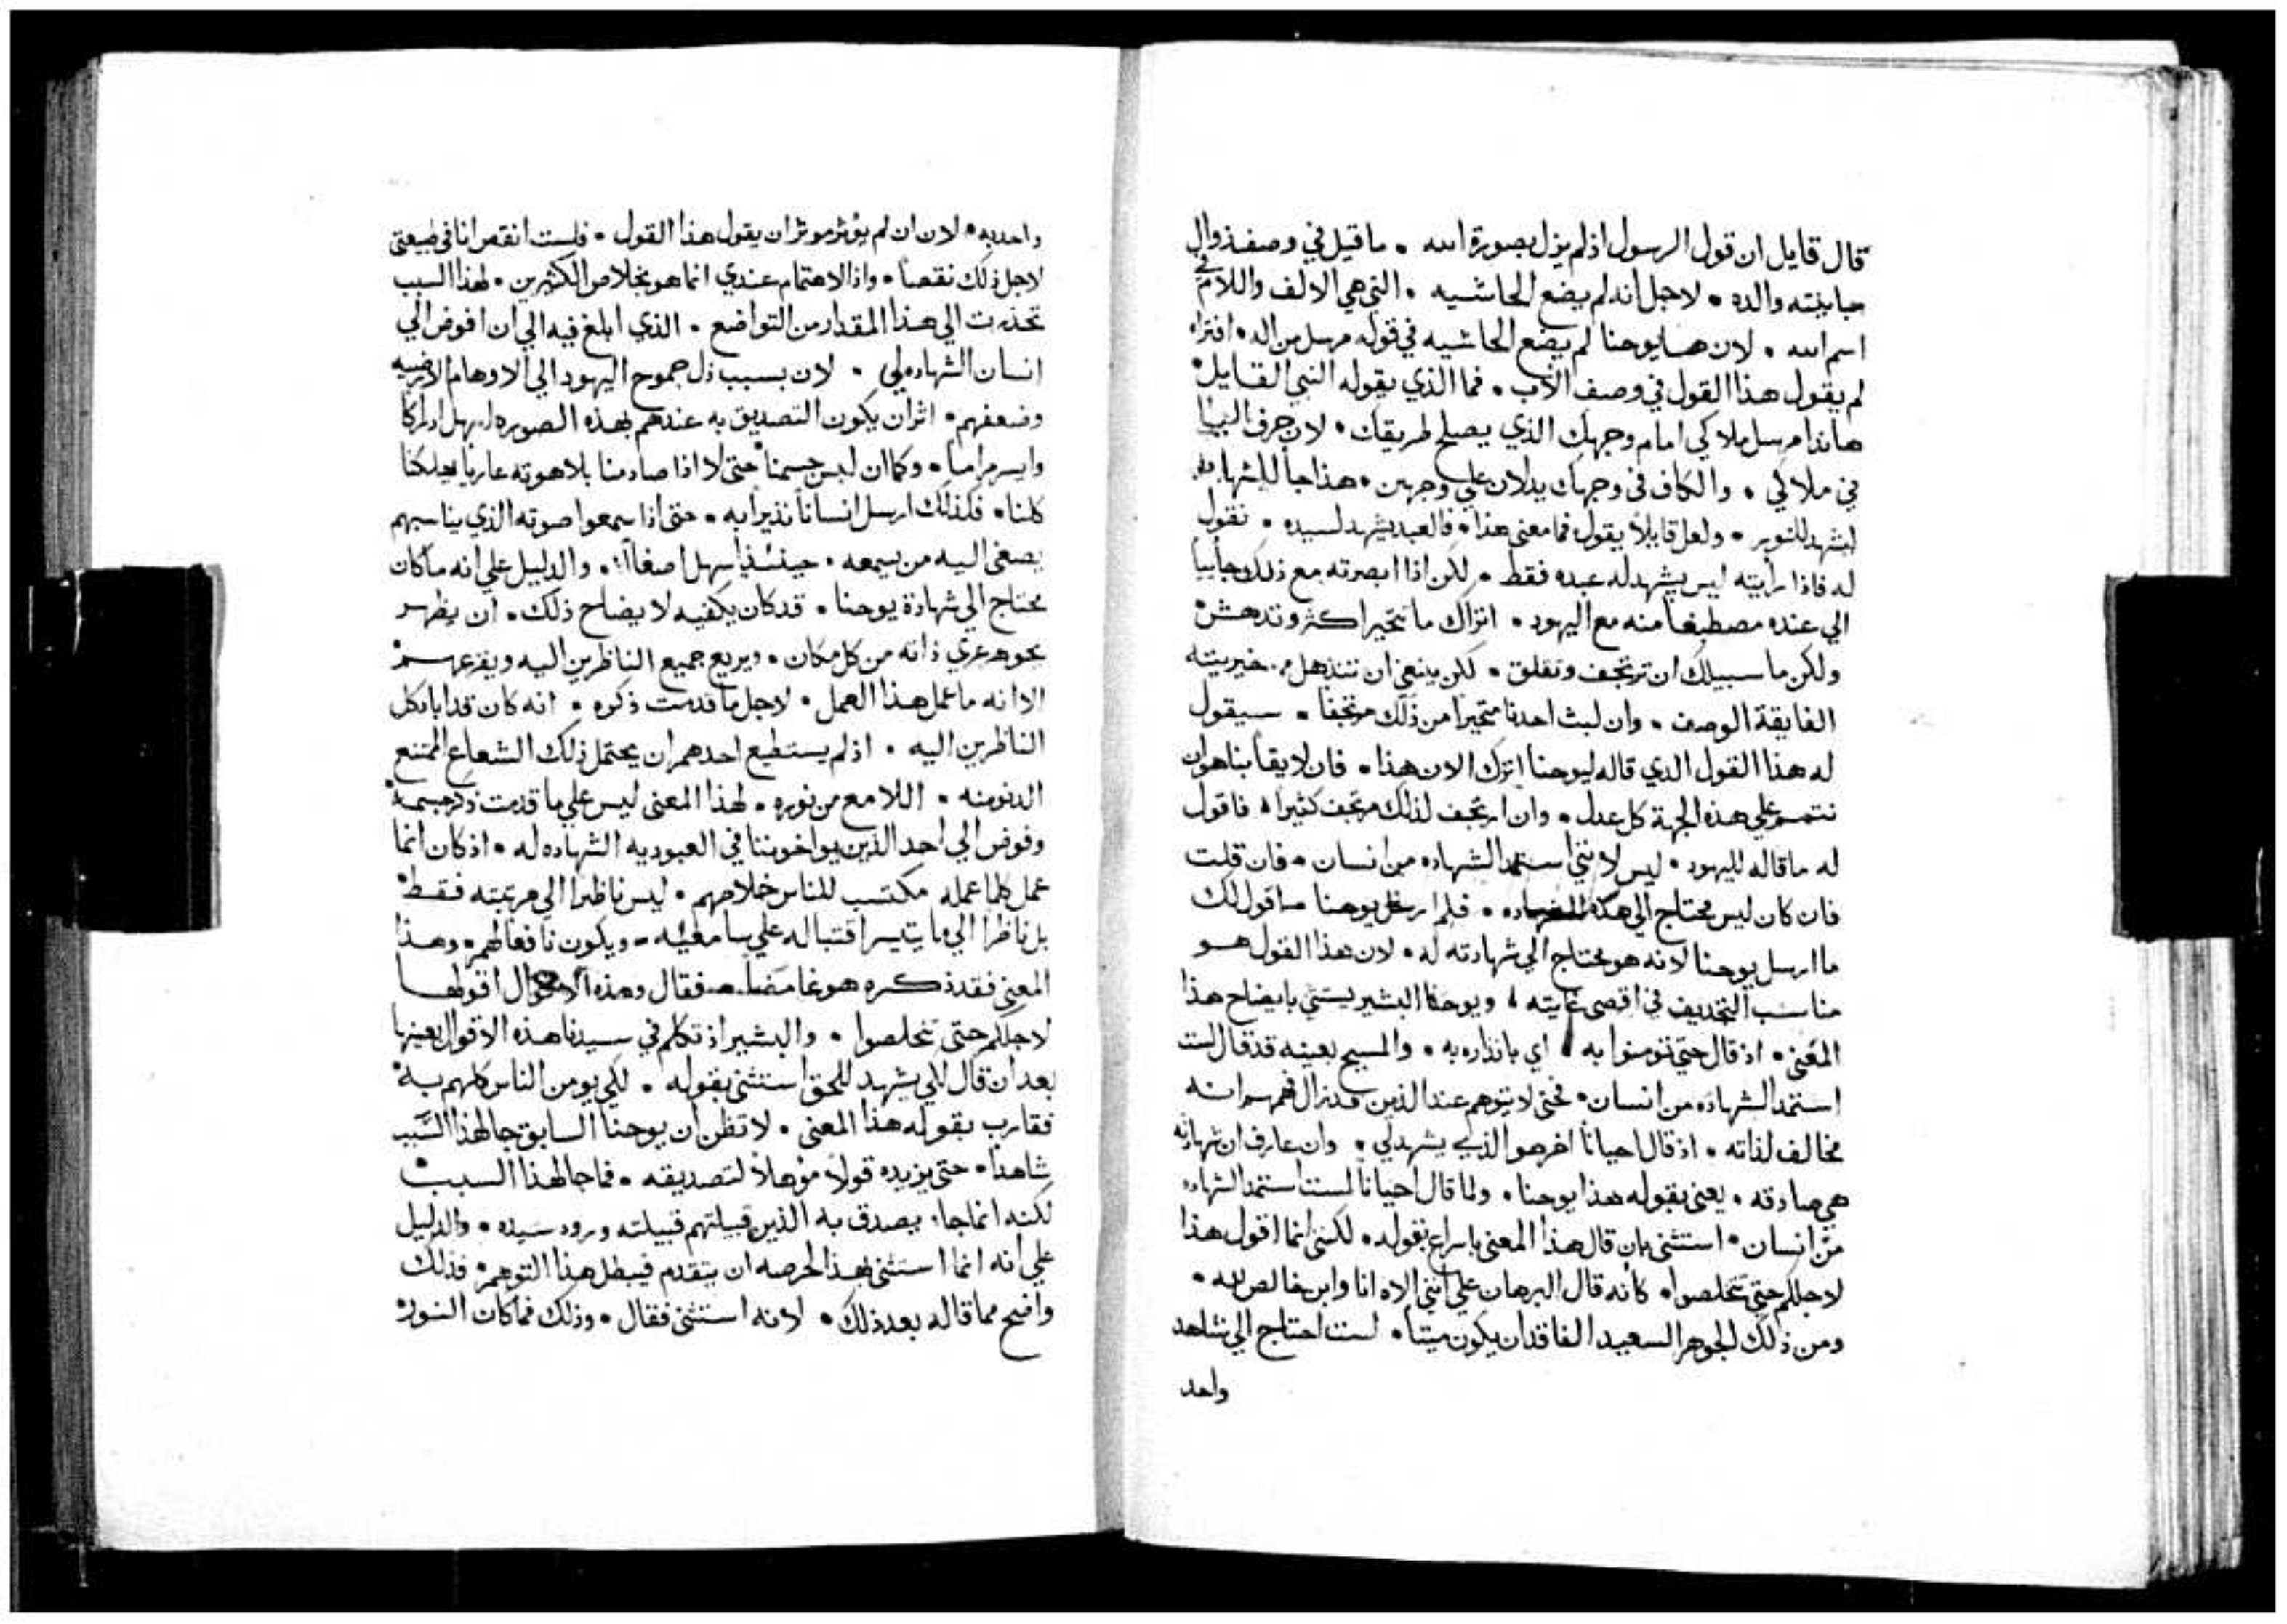 قال قايل ان قول الرسول اذ لم يزل بصورة الله • ما قيل في وصف ذوال
مباينته والده • لاجل انه لم يضع الحاشيه • التي هي الالف واللام في
اسم الله • لان هنا يوحنا لم يضع الحاشيه في قوله مرسل من اله • افتراه
لم يقول هذا القول في وصف الاب • فما الذي يقوله النبي القايل •
هانذا مرسل ملاكي امام وجهك الذي يصلح طريقك • لان حرف اليا
في ملاكي • والكاف في وجهك يدلان علي وجهين • هذا جا للشهاده
ليشهد للنور • ولعل قايلاً يقول فما معنى هذا • فالعبد يشهد لسيده • نقول
له فاذا رايته ليس يشهد له عبده فقط • لكن اذا ابصرته مع ذلك جاييا
الي عنده مصطبغا منه مع اليهود • اتراك ما تتحير اكثر وتندهش
ولكن ما سبيلك ان ترتجف وتقلق • لكن ينبغي ان تنذهل من خيريته
الفايقة الوصف • وان لبث احدنا متحيراً من ذلك مرتجفا • سيقول
له هذا القول الدي قاله ليوحنا اترك الان هذا • فان لايقاً بنا هو ان
نتمم علي هذه الجهة كل عدل • وان ارتجف لذلك مرتجف كثيرا • فاقول
له ما قاله لليهود • ليس لانني استمد الشهاده من انسان • فان قلت
فان كان ليس محتاج الي هذه الشهاده • فلم ارسل يوحنا • اقول لك
ما ارسل يوحنا لانه هو محتاج الي شهادته له • لان هذا القول هو
مناسب التجديف في اقصى غايته • ويوحنا البشير يستثني بايضاح هذا
المعنى • اذ قال حتي تومنوا به • اي بانذاره به • والمسيح بعينه قد قال لست
استمد الشهاده من انسان • فحتى لا يتوهم عند الذين قد زال فهمهم انه
مخالف لذاته • اذ قال احيانا اخر هو الذي يشهد لي • وان عارف ان شهادته
هي صادقه • يعني بقوله هذا يوحنا • ولما قال احيانا لست استمد الشهاده
من انسان • استثنى بان قال هذا المعنى باسراع بقوله • لكنني انما اقول هذا
لاجلكم حتي تخلصوا • كانه قال البرهان علي انني الاه انا وابن خالص لله •
ومن ذلك الجوهر السعيد الفاقد ان يكون ميتا • لست احتاج الي شاهد
واحد
واحد به • لان ان لم يؤثر موثر ان يقول هذا القول • فلست انقص انا في طبيعتي
لاجل ذلك نقصا • واذ الاهتمام عندي انما هو بخلاص الكثيرين • لهذا السبب
تحذرت الي هذا المقدار من التواضع • الذي ابلغ فيه الي ان افوض الي
انسان الشهاده لي • لان بسبب ذل جموح اليهود الي الاوهام الارضيه
وضعفهم • اثر ان يكون التصديق به عندهم بهذه الصوره اسهل ادراكا
وايسر مراما • وكما ان لبس جسمنا حتى لا اذا صادمنا بلاهوته عاريا يهلكنا
كلنا • فكذلك ارسل انساناً نذيراً به • حتى اذا سمعوا صوته الذي يناسبهم
يصغى اليه من يسمعه • حينئذ اسهل اصغاءً • والدليل علي انه ما كان
محتاج الي شهادة يوحنا • قد كان يكفيه لايضاح ذلك • ان يظهر
بجوهر عري ذاته من كل مكان • ويريع جميع الناظرين اليه ويفزعهم
الا انه ما عمل هذا العمل • لاجل ما قدمت ذكره • انه كان قد اباد كل
الناظرين اليه • اذ لم يستطيع احدهم ان يحتمل ذلك الشعاع الممتنع
الدنو منه • اللامع من نوره • لهذا المعنى لبس علي ما قدمت ذكره جسمه
وفوض الي احد الذين يواخوننا في العبوديه الشهاده له • اذ كان انما
عمل كلما عمله مكتسب للناس خلاصهم • ليس ناظرا الي مرتبته فقط
بل ناظرا الي ما يتيسر اقتباله علي سامعيه • ويكون نافعا لهم • وهذا
المعنى فقد ذكره هو غامضا • فقال وهذه الاقوال اقولها
لاجلكم حتى تخلصوا • والبشير اذ تكلم في سيدنا هذه الاقوال بعينها
بعد ان قال لكي يشهد للحق استثنى بقوله • لكي يومن الناس كلهم به
فقارب بقوله هذا المعنى • لا تظن ان يوحنا السابق جا لهذا السبب
شاهدا • حتى يزيده قولا مؤهلا لتصديقه • فما جا لهذا السبب
لكنه انما جاء يصدق به الذين قبيلتهم قبيلته ورود سيده • والدليل
علي انه انما استثنى بهذا لحرصه ان يتقدم فيبطل هذا التوهم • فذلك
واضح مما قاله بعد ذلك • لانه استثنى فقال • وذلك فما كان النور